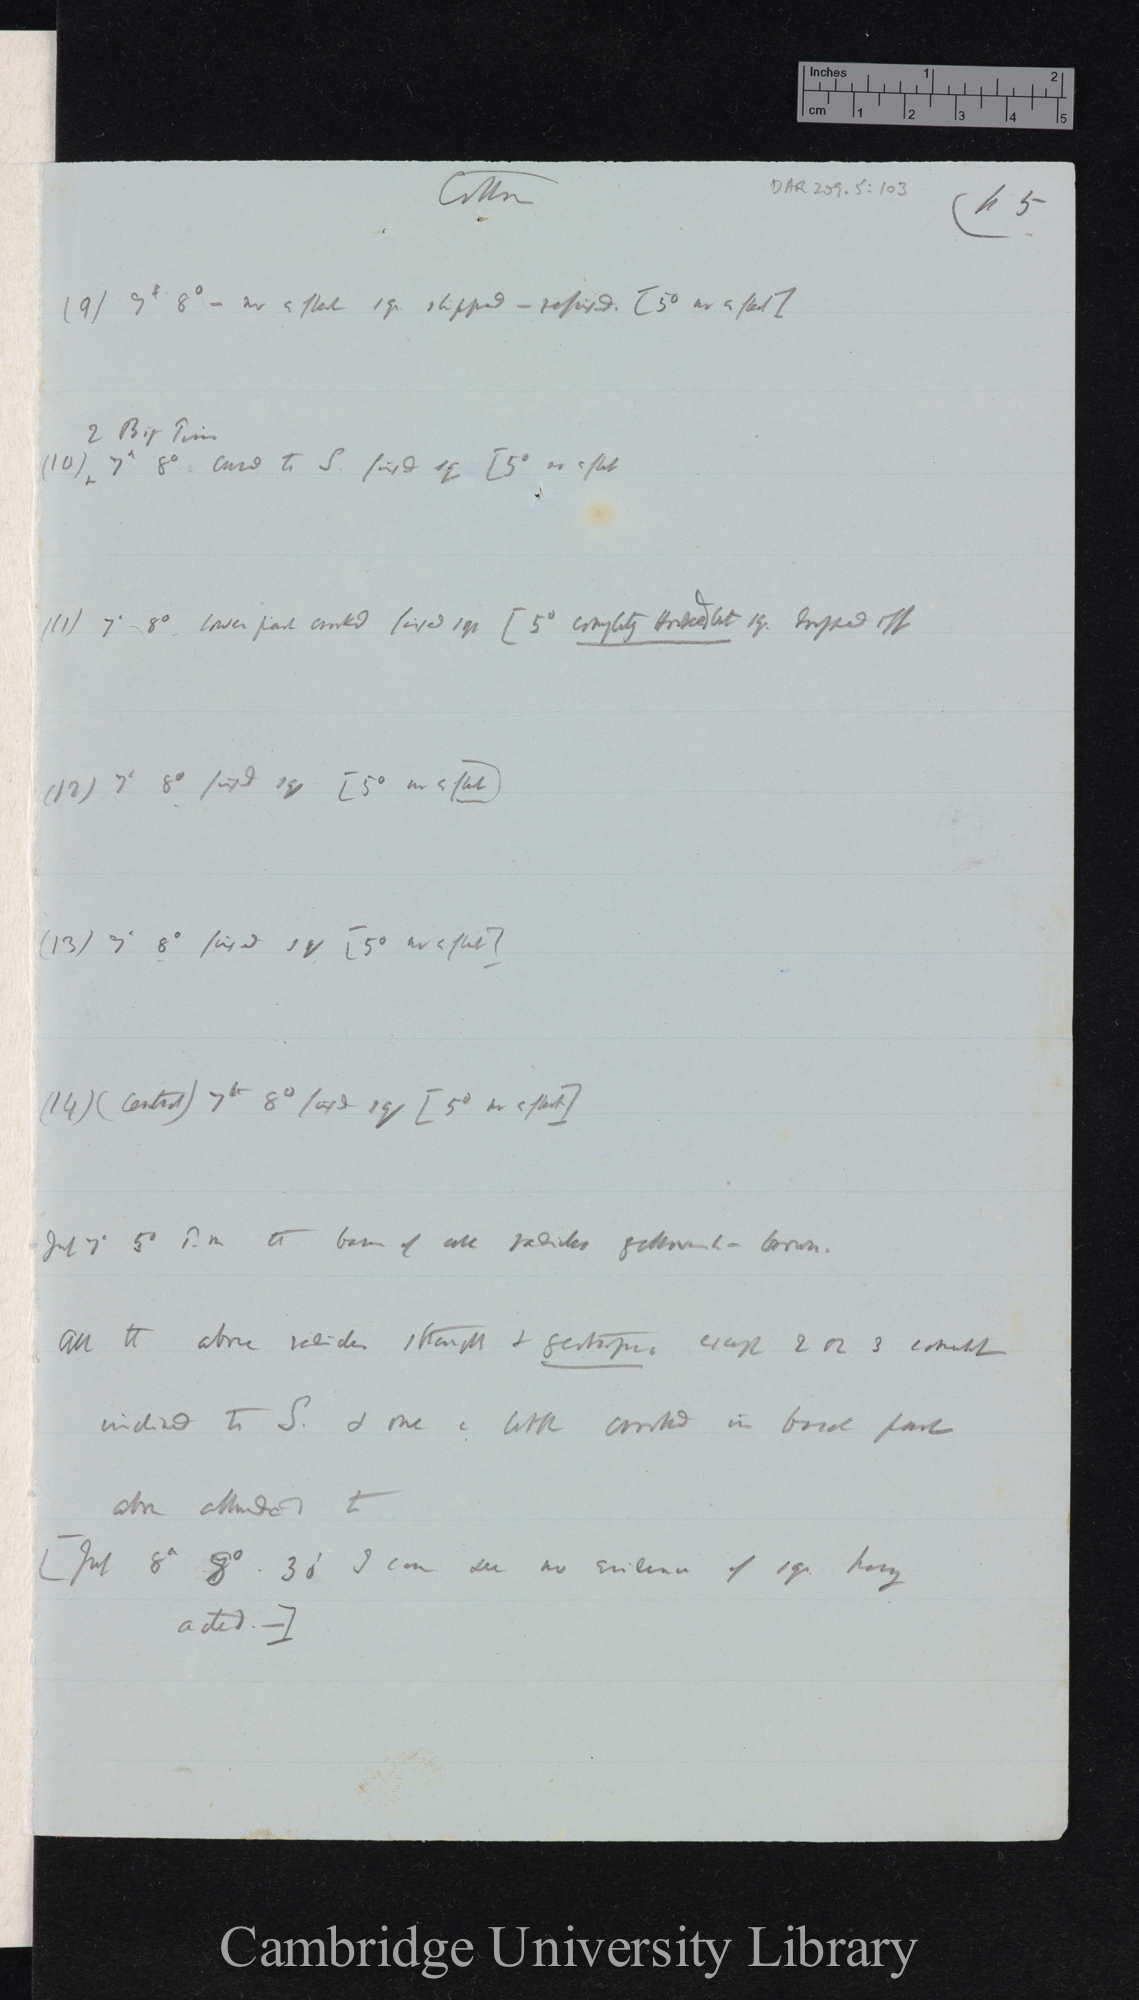 Inches 1 2
cm 1 2 3 4 5
Cotton
DAR 209.5:103
5
(9) 7th 8° – no effect sqr. slipped – refixed. [5° no effect]
2 Big Tins
(10) 7th 8° curved to S. fixed sqr [5° no effect
(11) 7th 8° lower part crooked fixed sqr [5° completely Hooked but sqr. dropped off
(12) 7th 8° fixed sqr [5° no effect]
(13) 7th 8° fixed sqr [5° no effect]
(14) (Control) 7th 8° fixed sqr [5° no effect]
July 7th 5° P.m the bases of all radicles yellowish-brown.
All the above radicles straight & geotropic except 2 or 3 somewhat
inclined to S. & one a little crooked in basal part
above alluded to
[July 8th 8°. 30' I can see no evidence of sqr. having
acted. —]
Cambridge University Library